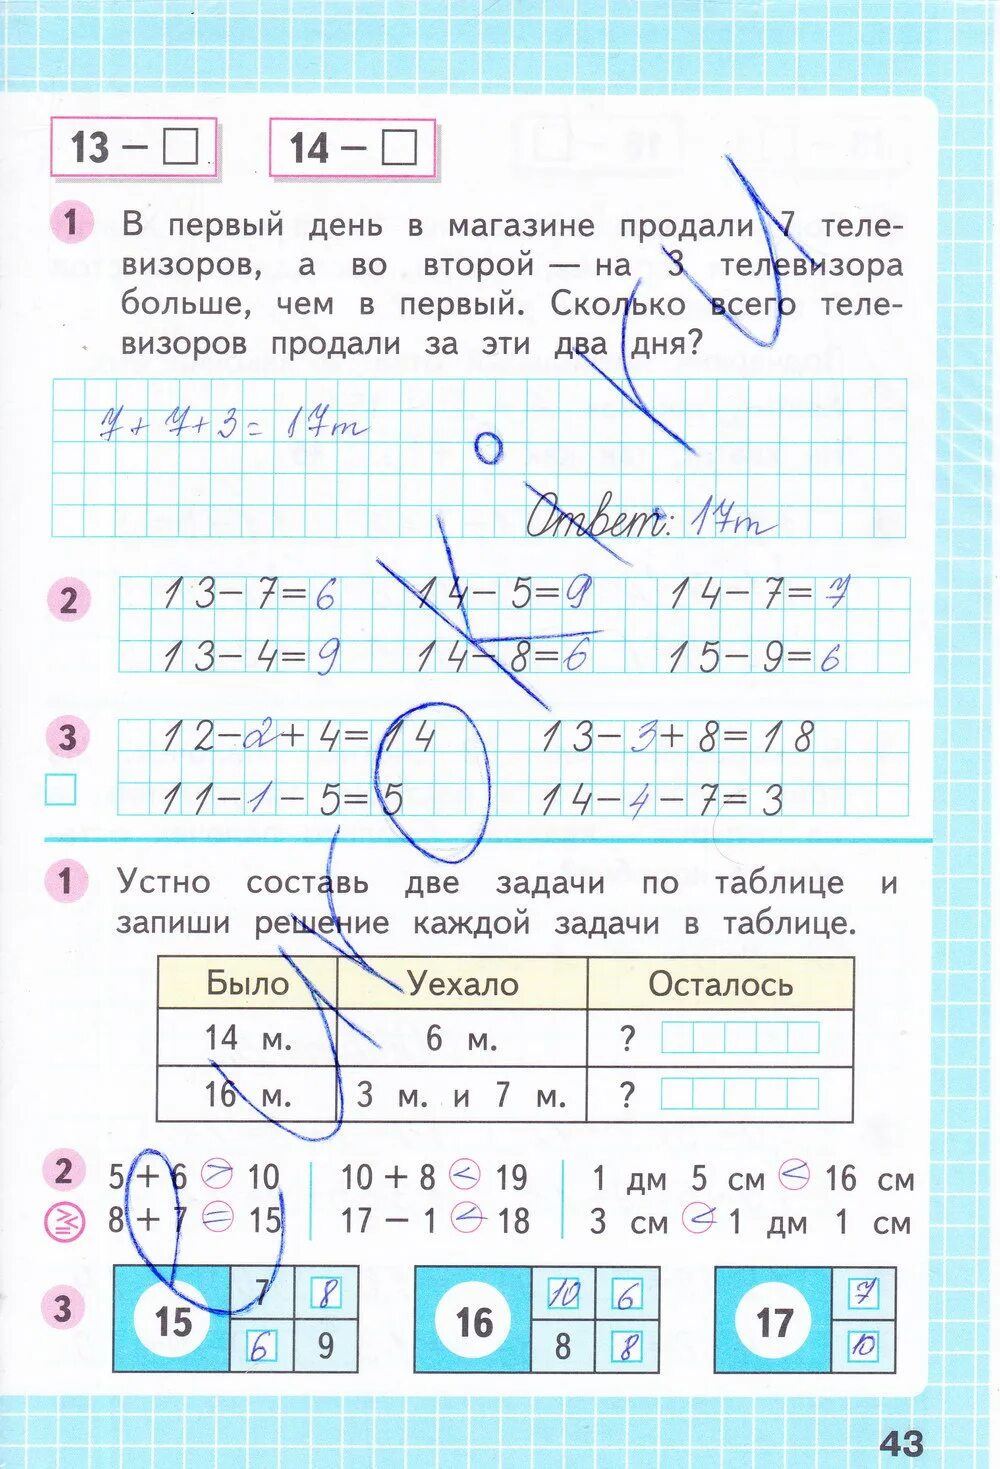 13 − □ 14 − □
1 В первый день в магазине продали 7 теле-
визоров, а во второй — на 3 телевизора
больше, чем в первый. Сколько всего теле-
визоров продали за эти два дня?
7 + 7 + 3 = 17т
Ответ: 17т
2 13 − 7 = 6 14 − 5 = 9 14 − 7 = 7
13 − 4 = 9 14 − 8 = 6 15 − 9 = 6
3 12 − 2 + 4 = 14 13 − 3 + 8 = 18
11 − 1 − 5 = 5 14 − 4 − 7 = 3
1 Устно составь две задачи по таблице и
запиши решение каждой задачи в таблице.
Было Уехало Осталось
14 м. 6 м. ?
16 м. 3 м. и 7 м. ?
2 5 + 6 > 10 10 + 8 < 19 1 дм 5 см < 16 см
8 + 7 = 15 17 − 1 < 18 3 см < 1 дм 1 см
3 15 7 8 16 10 6 17 7
6 9 8 8 10
43